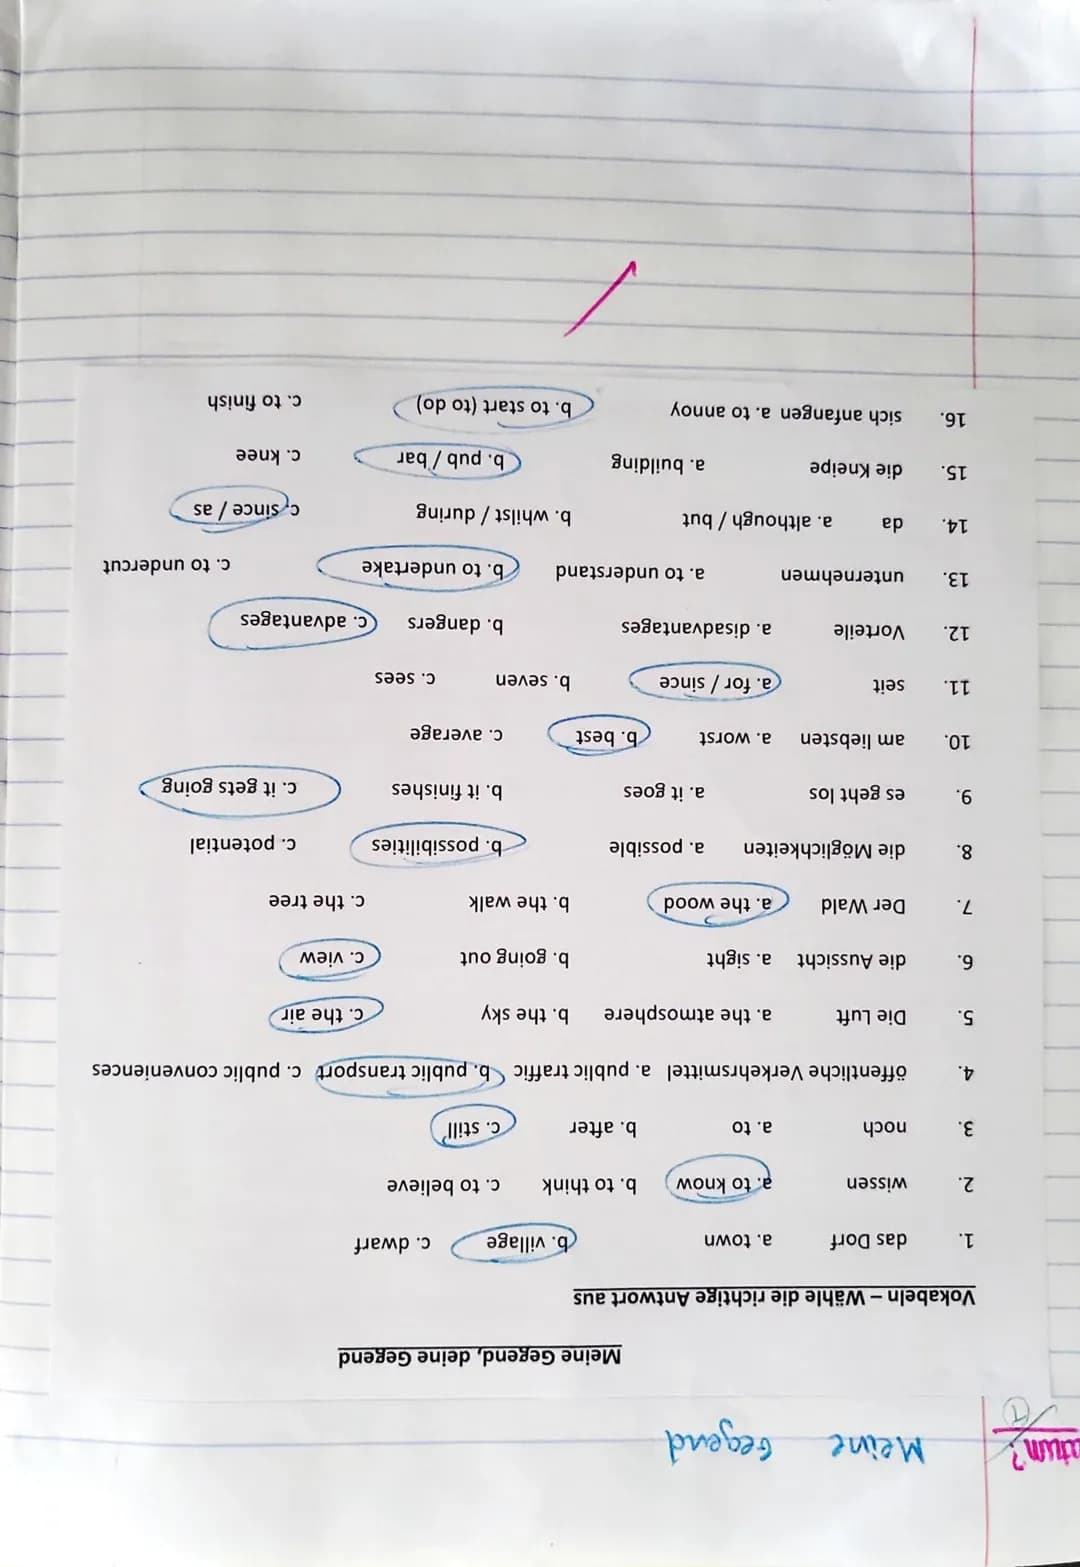 atum?
Meine Gegend
Meine Gegend, deine Gegend
Vokabeln – Wähle die richtige Antwort aus
1. das Dorf a. town b. village c. dwarf
2. wissen a. to know b. to think c. to believe
3. noch a. to b. after c. still
4. öffentliche Verkehrsmittel a. public traffic b. public transport c. public conveniences
5. Die Luft a. the atmosphere b. the sky c. the air
6. die Aussicht a. sight b. going out c. view
7. Der Wald a. the wood b. the walk c. the tree
8. die Möglichkeiten a. possible b. possibilities c. potential
9. es geht los a. it goes b. it finishes c. it gets going
10. am liebsten a. worst b. best c. average
11. seit a. for / since b. seven c. sees
12. Vorteile a. disadvantages b. dangers c. advantages
13. unternehmen a. to understand b. to undertake c. to undercut
14. da a. although / but b. whilst / during c. since / as
15. die Kneipe a. building b. pub / bar c. knee
16. sich anfangen a. to annoy b. to start (to do) c. to finish